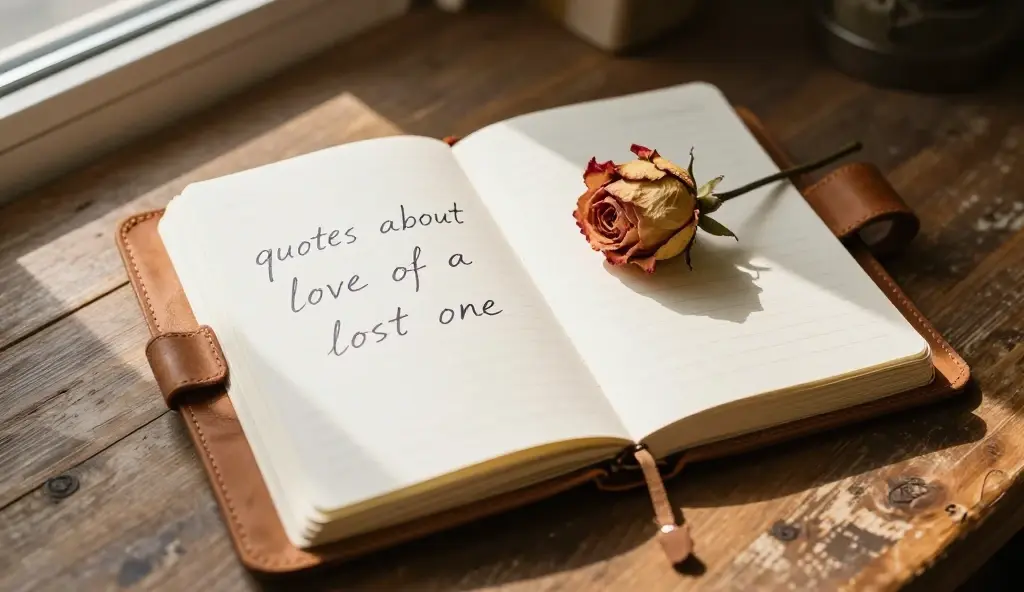 quotes about
love of a
lost one